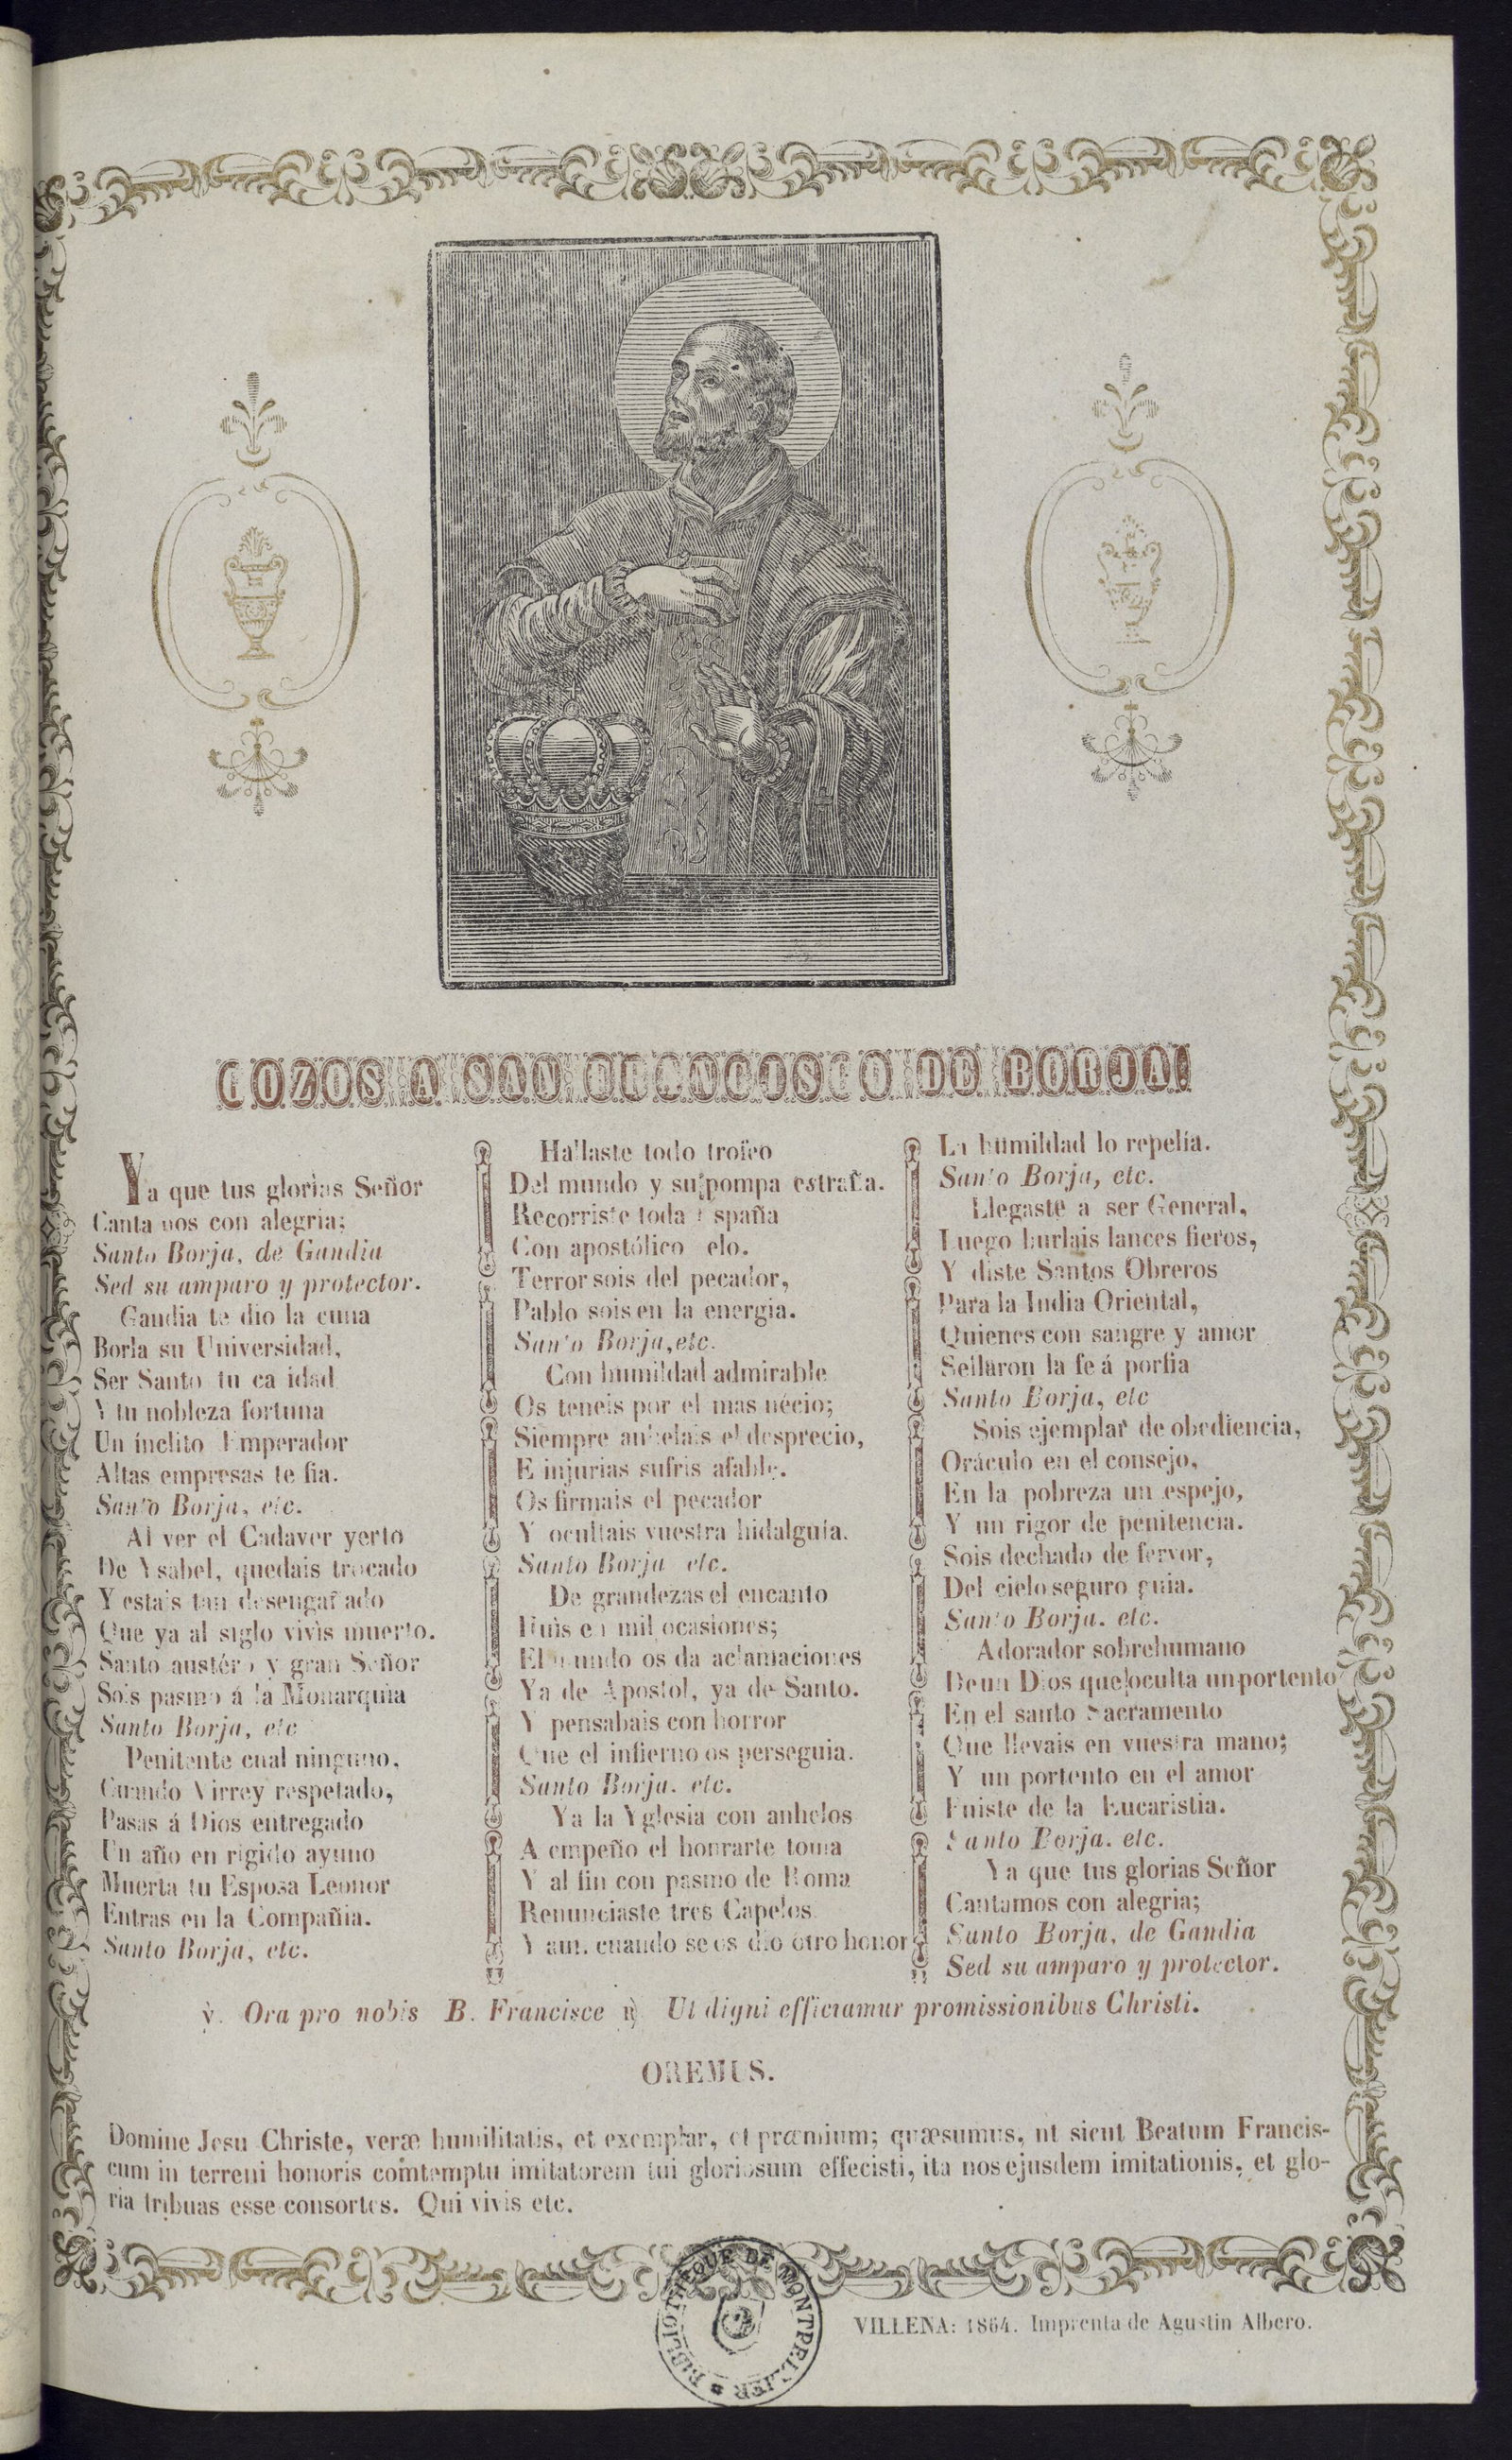 GOZOS A SAN FRANCISCO DE BORJA.
Ya que tus glorias Señor
Cantamos con alegria;
Santo Borja, de Gandia
Sed su amparo y protector.
Gandia te dio la cuna
Borla su Universidad,
Ser Santo tu calidad
Y tu nobleza fortuna
Un ínclito Emperador
Altas empresas te fia.
Santo Borja, etc.
Al ver el Cadaver yerto
De Ysabel, quedais trocado
Y estais tan desengañado
Que ya al siglo vivis muerto.
Santo austéro y gran Señor
Sois pasmo á la Monarquia
Santo Borja, etc
Penitente cual ninguno,
Cuando Virrey respetado,
Pasas á Dios entregado
Un año en rigido ayuno
Muerta tu Esposa Leonor
Entras en la Compañia.
Santo Borja, etc.
Hallaste todo trofeo
Del mundo y su pompa estraña.
Recorriste toda España
Con apostólico celo.
Terror sois del pecador,
Pablo sois en la energia.
Santo Borja, etc.
Con humildad admirable
Os teneis por el mas nécio;
Siempre anhelais el desprecio,
E injurias sufris afable.
Os firmais el pecador
Y ocultais vuestra hidalguía.
Santo Borja etc.
De grandezas el encanto
Huis en mil ocasiones;
El mundo os da aclamaciones
Ya de Apostol, ya de Santo.
Y pensabais con horror
Que el infierno os perseguia.
Santo Borja. etc.
Ya la Yglesia con anhelos
A empeño el honrarte toma
Y al fin con pasmo de Roma
Renunciaste tres Capelos
Y aun cuando se os dio otro honor
La humildad lo repelía.
Santo Borja, etc.
Llegaste a ser General,
Luego burlais lances fieros,
Y diste Santos Obreros
Para la India Oriental,
Quienes con sangre y amor
Sellaron la fe á porfia
Santo Borja, etc
Sois ejemplar de obediencia,
Oráculo en el consejo,
En la pobreza un espejo,
Y un rigor de penitencia.
Sois dechado de fervor,
Del cielo seguro guia.
Santo Borja. etc.
Adorador sobrehumano
De un Dios que oculta un portento
En el santo Sacramento
Que llevais en vuestra mano;
Y un portento en el amor
Fuiste de la Eucaristia.
Santo Borja. etc.
Ya que tus glorias Señor
Cantamos con alegria;
Santo Borja, de Gandia
Sed su amparo y protector.
℣. Ora pro nobis B. Francisce ℟ Ut digni efficiamur promissionibus Christi.
OREMUS.
Domine Jesu Christe, veræ humilitatis, et exemplar, et præmium; quæsumus, ut sicut Beatum Francis-
cum in terreni honoris comtemptu imitatorem tui gloriosum effecisti, ita nos ejusdem imitationis, et glo-
ria tribuas esse consortes. Qui vivis etc.
BIBLIOTHEQUE DE MONTPELLIER
VILLENA: 1864. Imprenta de Agustin Albero.